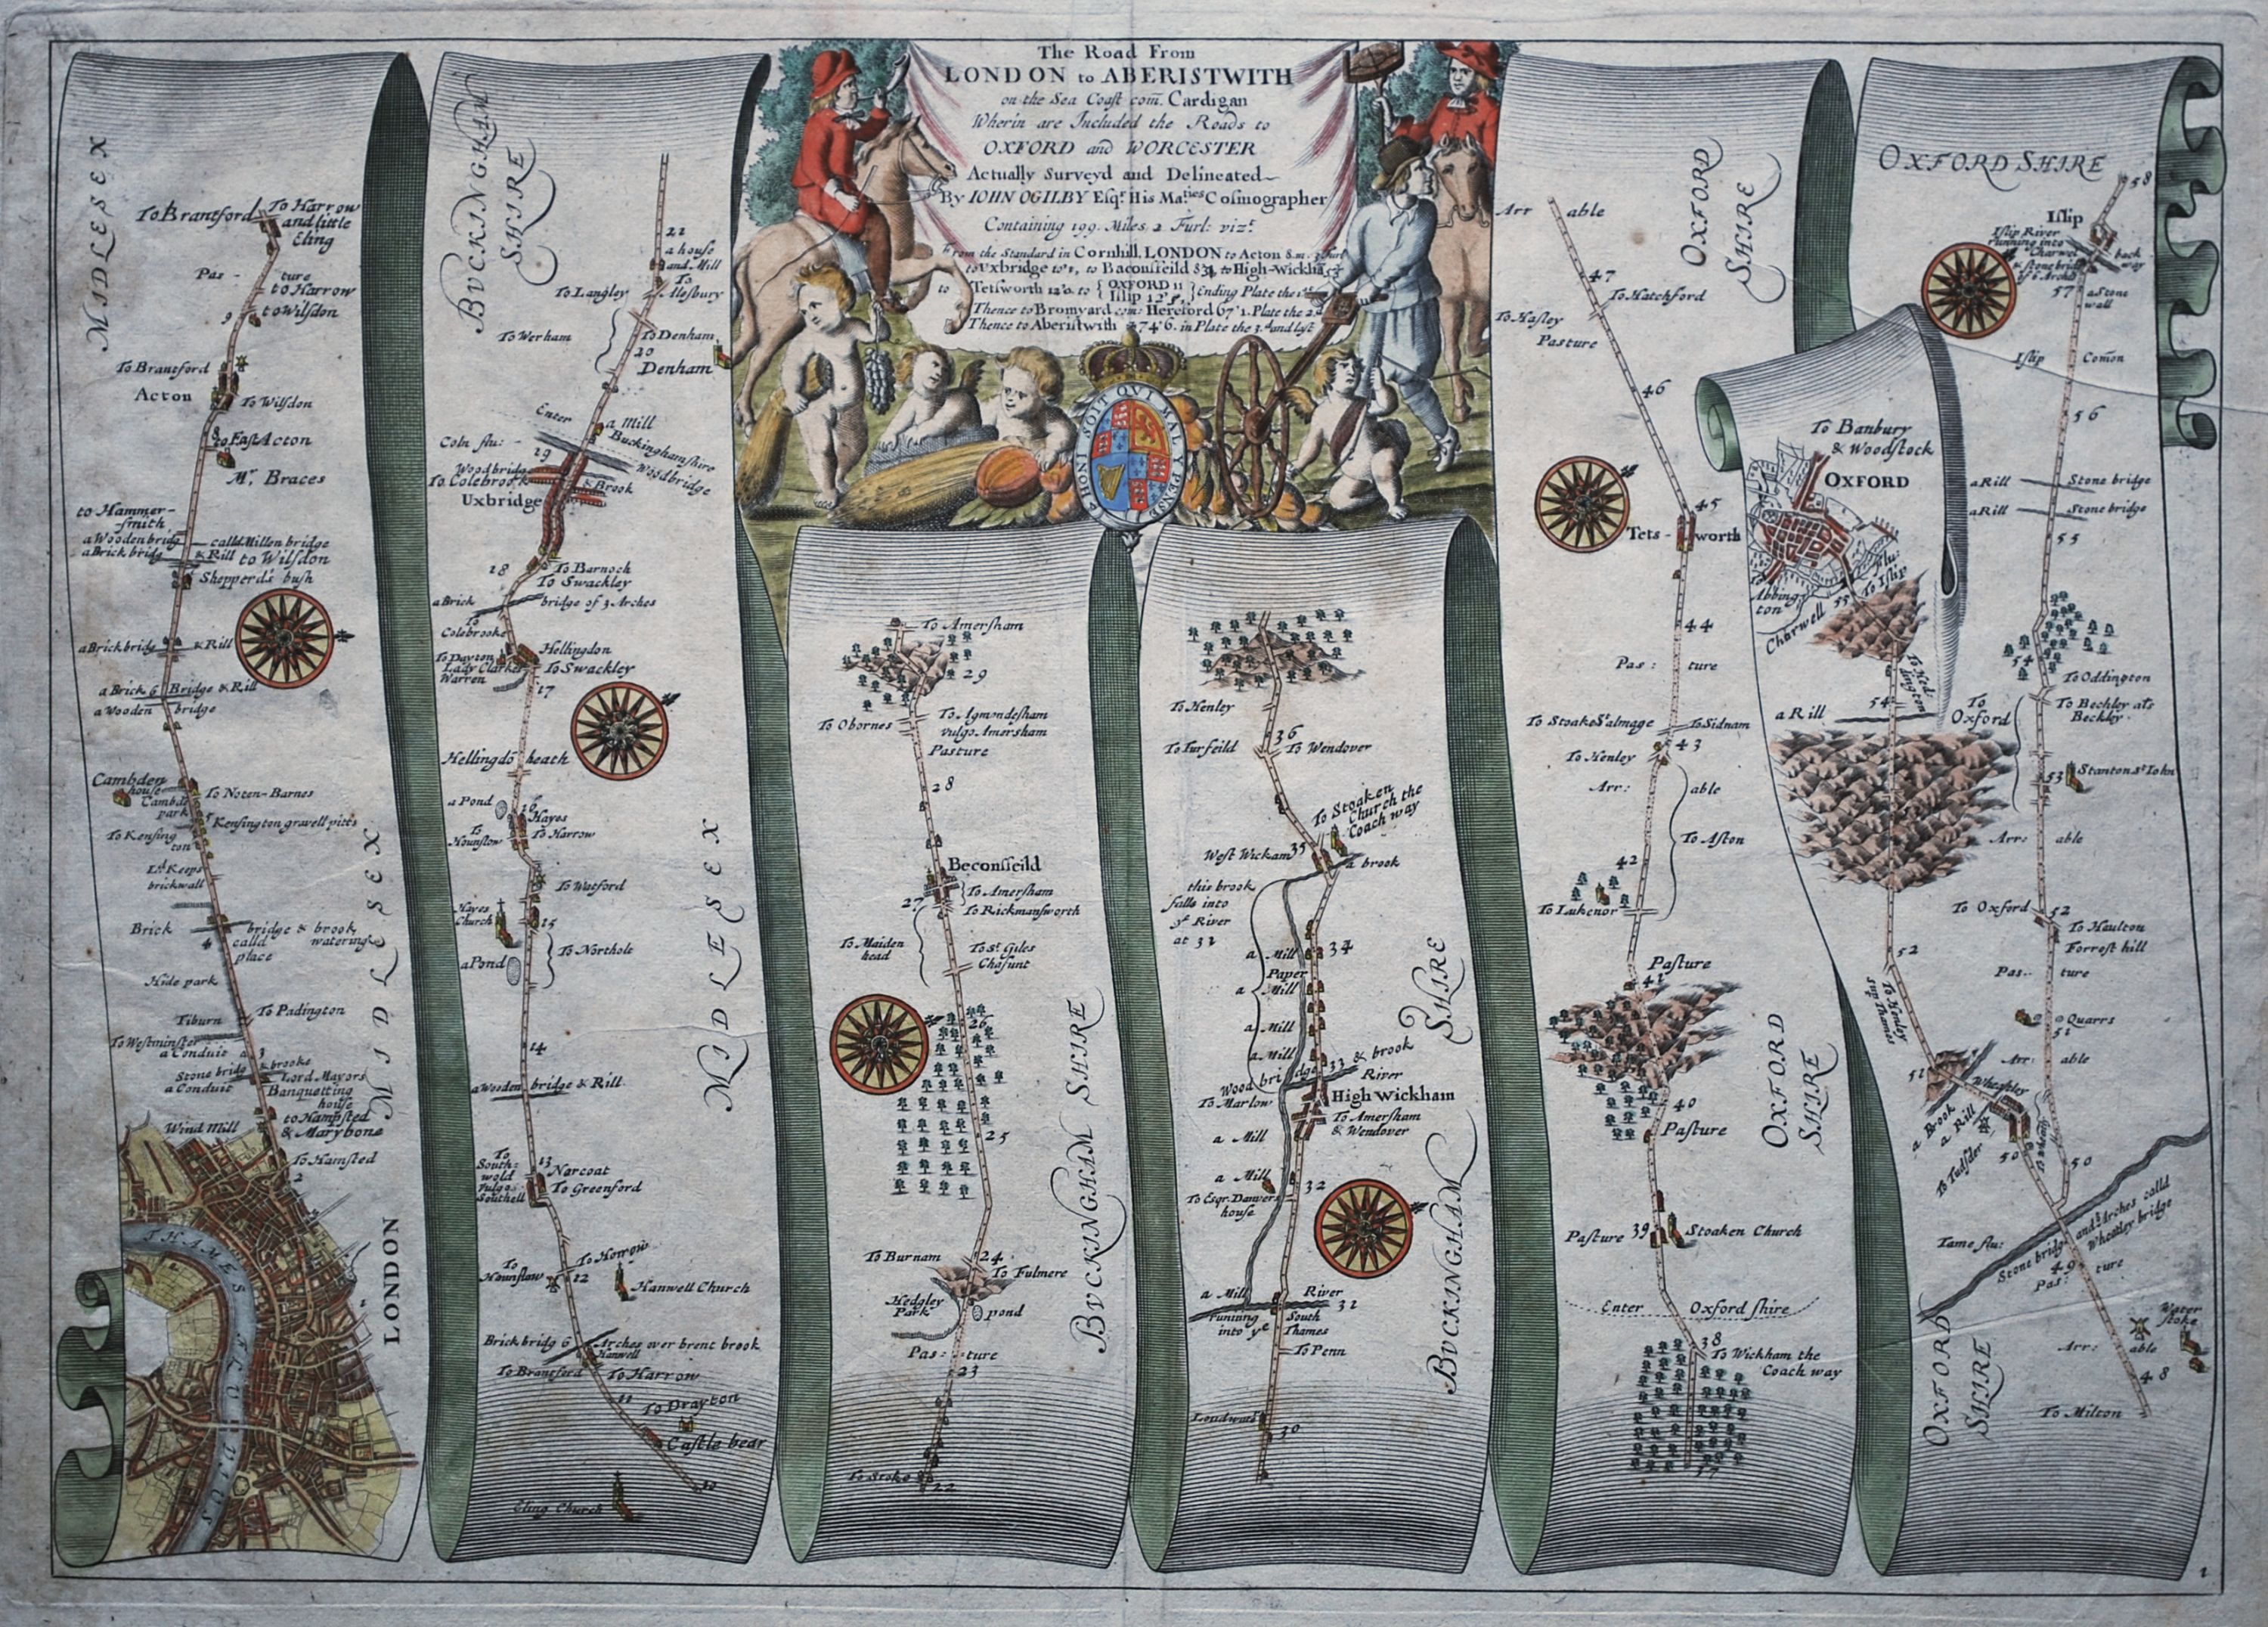 The Road From
LONDON to ABERISTWITH
on the Sea Coast com̄. Cardigan
Wherin are Included the Roads to
OXFORD and WORCESTER
Actually Surveyd and Delineated
By IOHN OGILBY Esqr. His Maties Cosmographer
Containing 199. Miles. 2 Furl: vizt.
From the Standard in Cornhill, LONDON to Acton 8.m: 3 furl
to Uxbridge 10'1, to Baconsfeild 8'3/4, to High-Wickham
to Tettworth 12'0. to { OXFORD 11
Islip 12'5, } Ending Plate the 1st
Thence to Bromyard com: Hereford 67'1. Plate the 2d
Thence to Aberistwith 74'6. in Plate the 3.d and last
HONI SOIT QVI MAL Y PENSE
MIDLESEX
To Brantford
To Harrow
and little
Eling
Pas - ture
to Harrow
9
to Wilsdon
To Brantford
Acton
To Wilsdon
8
to East Acton
Mr. Braces
to Hammer-
smith
a Wooden bridg
calld Millen bridge
a Brick bridg
& Rill
to Wilsdon
Shepperds bush
a Brick bridg
& Rill
a Brick 6 Bridge & Rill
a Wooden bridge
Cambden
house
Cambde
park
To Noten-Barnes
5
Kensington gravell pitts
To Kensing
ton
Ld. Keeps
brickwall
Brick
bridge & brook
4
calld watering
place
Hide park
MIDLESEX
Tiburn
To Padington
To Westminster
a Conduit
3
Stone bridg & brooke
a Conduit
Lord Mayors
Banquetting
house
to Hampsted
& Marybone
Wind Mill
To Hamsted
2
THAMES FLUVIUS
1
LONDON
BVCKINGHAM
SHIRE
22
a house
and Mill
To Langley
To
Alesbury
To Werham
To Denham
20
Denham
Enter
Buckinghamshire
a Mill
Coln flu:
19
Woodbridge
Woodbridge
To Colebrook
& Brook
Uxbridge
18
To Barnoch
To Swackley
a Brick bridge of 3 Arches
To
Colebrooke
Hellingdon
To Dayton
Lady Clarkes
Warren
To Swackley
17
Hellingdō heath
a Pond
16
Hayes
To
Hounslow
To Harrow
To Watford
Hayes
Church
15
To Northolt
a Pond
MIDLESEX
14
a Wooden bridge & Rill
To
South-
wold
vulgo
Southell
13
Norcoat
To Greenford
To
Hounslow
To Horrow
12
Hanwell Church
Brick bridg 6 Arches over brent brook
Hanwell
To Brantford
To Harrow
11
To Drayton
Castle bear
10
Eling Church
To Amersham
29
To Obornes
To Agmondesham
vulgo Amersham
Pasture
28
Beconsfeild
To Amersham
27
To Rickmansworth
To Maiden
head
To St. Giles
Chafunt
26
BVCKINGHAM SHIRE
25
To Burnam
24
To Fulmere
Hedgley
Park
pond
Pas: ture
23
To Stoke
22
To Henley
36
To Turfeild
To Wendover
To Stoaken
Church the
Coach way
West Wickam
35
a brook
this brook
falls into
ye River
at 32
a Mill
34
Paper
a Mill
a Mill
a Mill
& brook
33
Wood bridge
River
To Marlow
High Wickham
To Amersham
& Wendover
a Mill
a Mill
32
To Esqr. Danvers
house
a Mill
River
31
running
into ye
South
Thames
To Penn
Loudwater
30
BVCKINGHAM
SHIRE
Arr able
OXFORD
SHIRE
47
To Hatchford
To Hasley
Pasture
46
45
Tets - worth
44
Pas: ture
To Stoake St almage
To Sidnam
43
To Henley
Arr: able
To Aston
42
To Lukenor
Pasture
41
40
Pasture
OXFORD
SHIRE
Pasture
39
Stoaken Church
Enter Oxford shire
38
To Wickham the
Coach way
37
To Banbury
& Woodstock
OXFORD
To
Abbing
ton
55
To Islip
Charwell flu:
To Hed-
dington
54
a Rill
52
To Henley
sup Thames
51
Wheatley
a Brook
a Rill
To Tudsder
50
OXFORD SHIRE
58
Islip
Islip River
running into
Charwel
& Stone bridg
of 6 Arches
back
way
57
a Stone
wall
Islip Com̄on
56
a Rill
Stone bridge
a Rill
Stone bridge
55
54
To Oddington
To
Oxford
To Bechley als
Beckley
53
Stanton St Iohn
Arr: able
To Oxford
52
To Haulton
Forrest hill
Pas- ture
Quarrs
51
Arr: able
50
Tame flu:
Stone bridg and Arches calld
Wheatley bridge
49
Pas: ture
Water
Stoke
Arr: able
48
To Milton
OXFORD
SHIRE
1